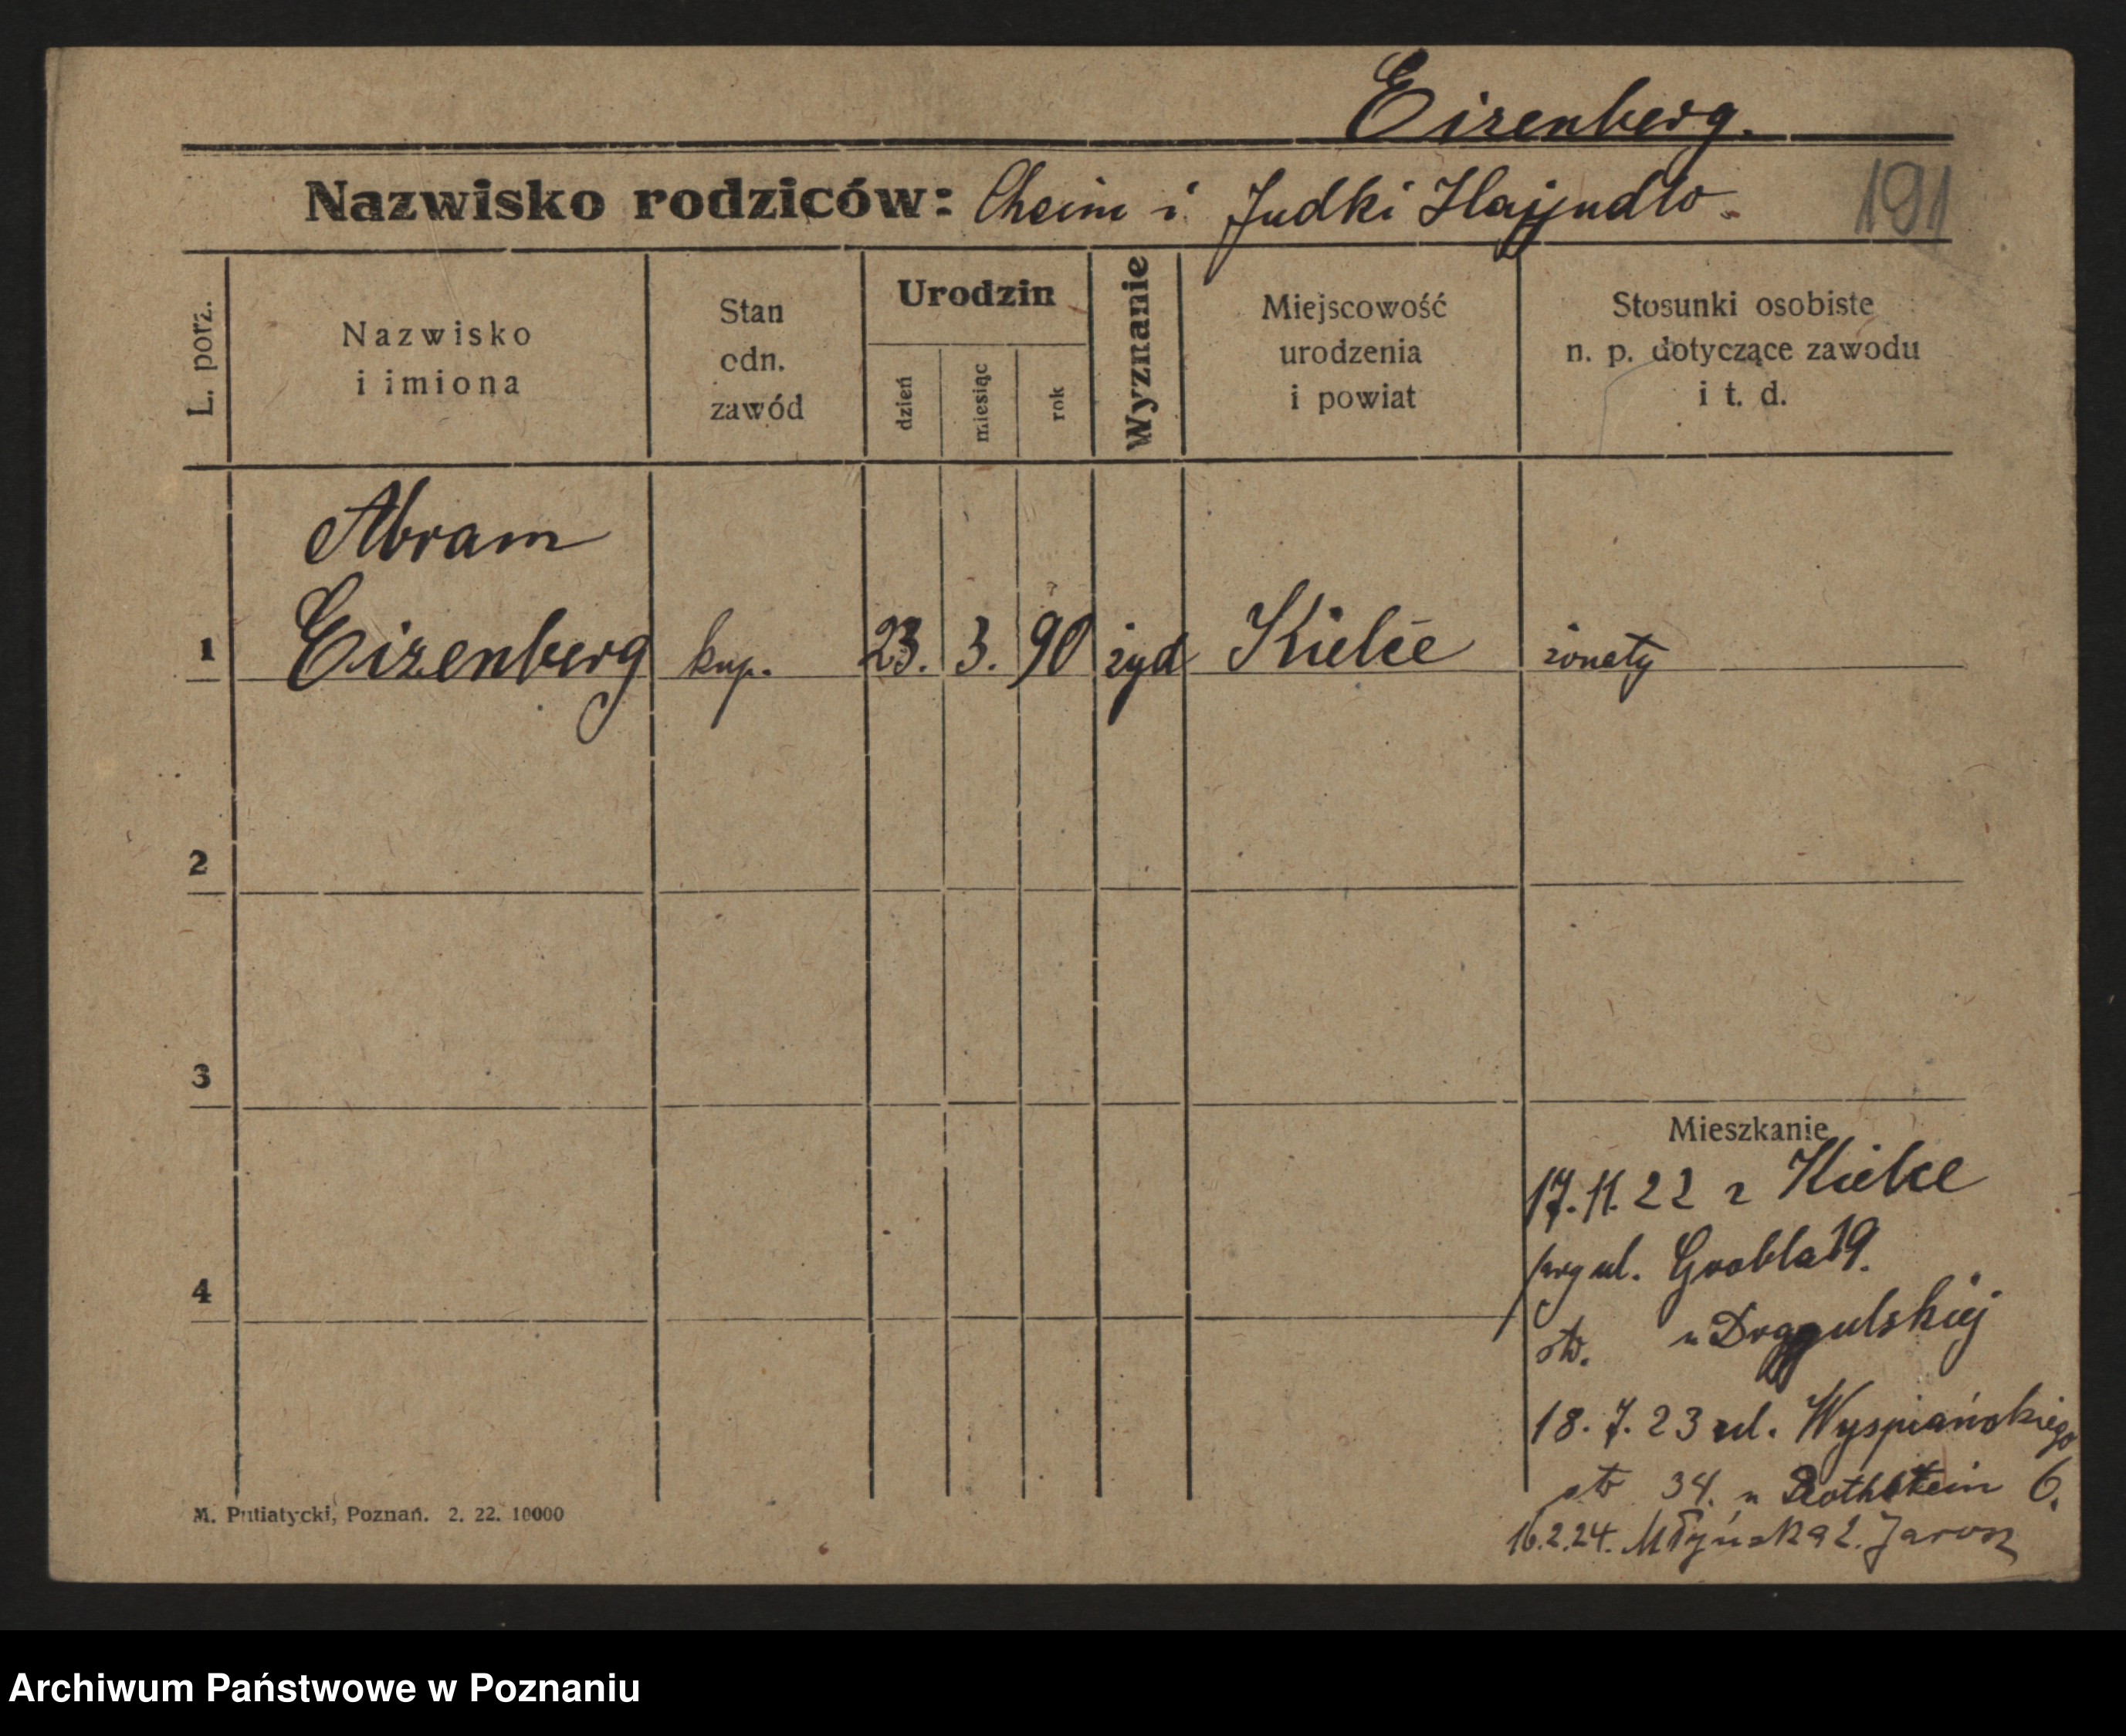 Eizenberg.
Nazwisko rodziców: Cheim i Judki Hajndlo.
191
L. porz.
Nazwisko
i imiona
Stan
odn.
zawód
Urodzin
dzień
miesiąc
rok
Wyznanie
Miejscowość
urodzenia
i powiat
Stosunki osobiste
n. p. dotyczące zawodu
i t. d.
Abram
1 Eizenberg kup. 23. 3. 90 żyd Kielce żonaty
2
3
Mieszkanie
17.11.22 z Kielce
ul. Grobla 19.
4
u Drągulskiej
18. 7. 23 ul. Wyspiańskiego
34. u Rothstein 6.
16.2.24. Młyńska 2. Jarosz
M. Putiatycki, Poznań. 2. 22. 10000
Archiwum Państwowe w Poznaniu